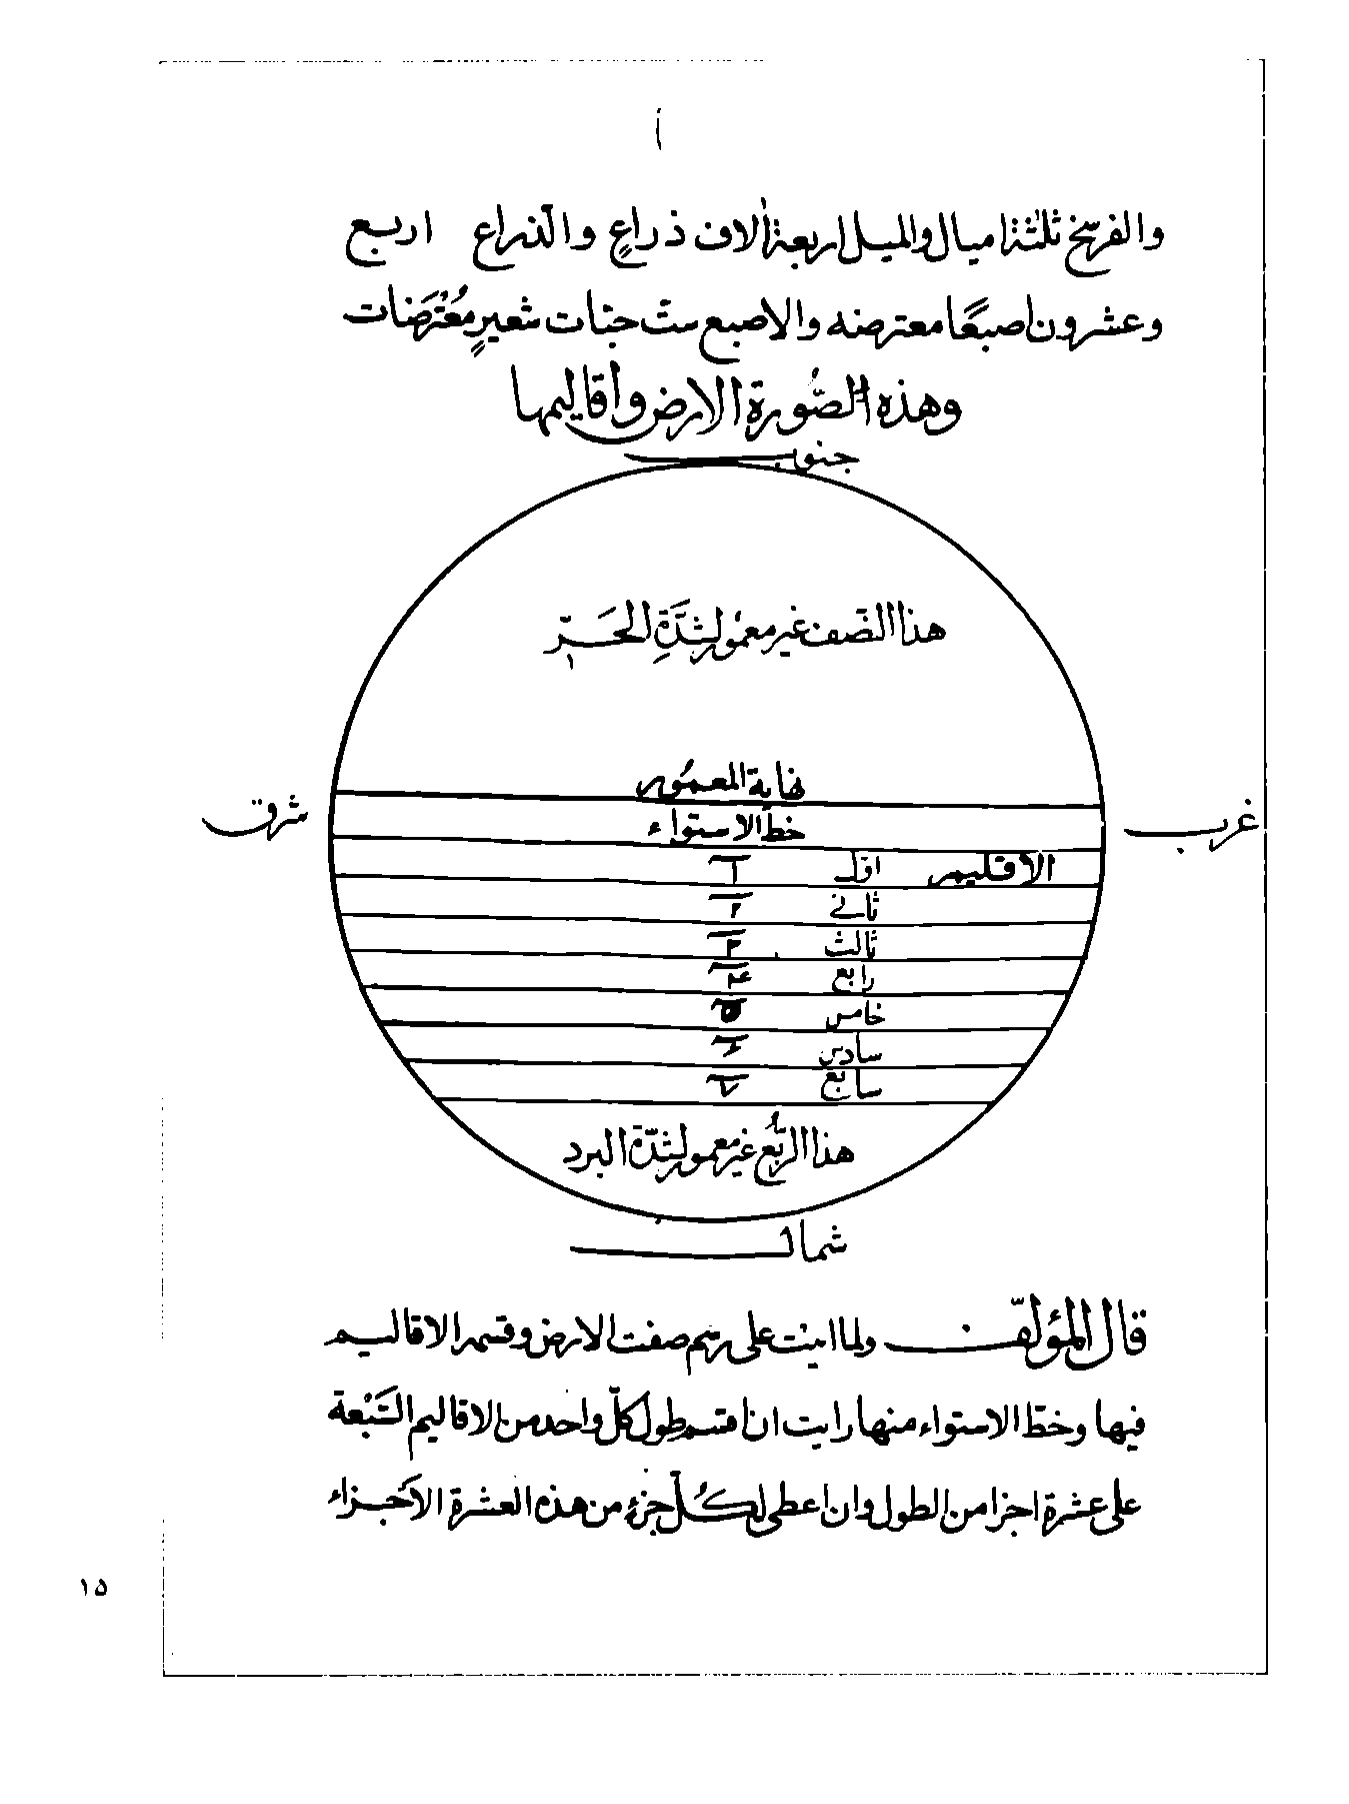 والفرسخ ثلثة اميال والميل اربعة ألاف ذراعٍ والذراع اربع
وعشرون اصبعًا معترضه والاصبع ستّ حبّات شعيرٍ مُعْترَضات
وهذه الصُّورة الارض وأقاليمها
جنوب
هذا النصف غير معمُور لشدَّةِ الحَرّ
نهاية المعمُور
خط الاستواء
شرق
غرب
الاقليم اوّل ١
ثاني ٢
ثالث ٣
رابع ۴
خامس ۵
سادس ۶
سابع ٧
هذا الرّبُع غير معمور لشدّة البرد
شمال
قال المؤلّف ولما اتيت على رسم صفت الارض وقسمة الاقاليم
فيها وخطّ الاستواء منها رايت ان اقسم طول كلّ واحد من الاقاليم السَّبْعة
على عشرة اجزا من الطول وان اعطى لكُلّ جزءٍ من هذه العشرة الأجزاء
١٥